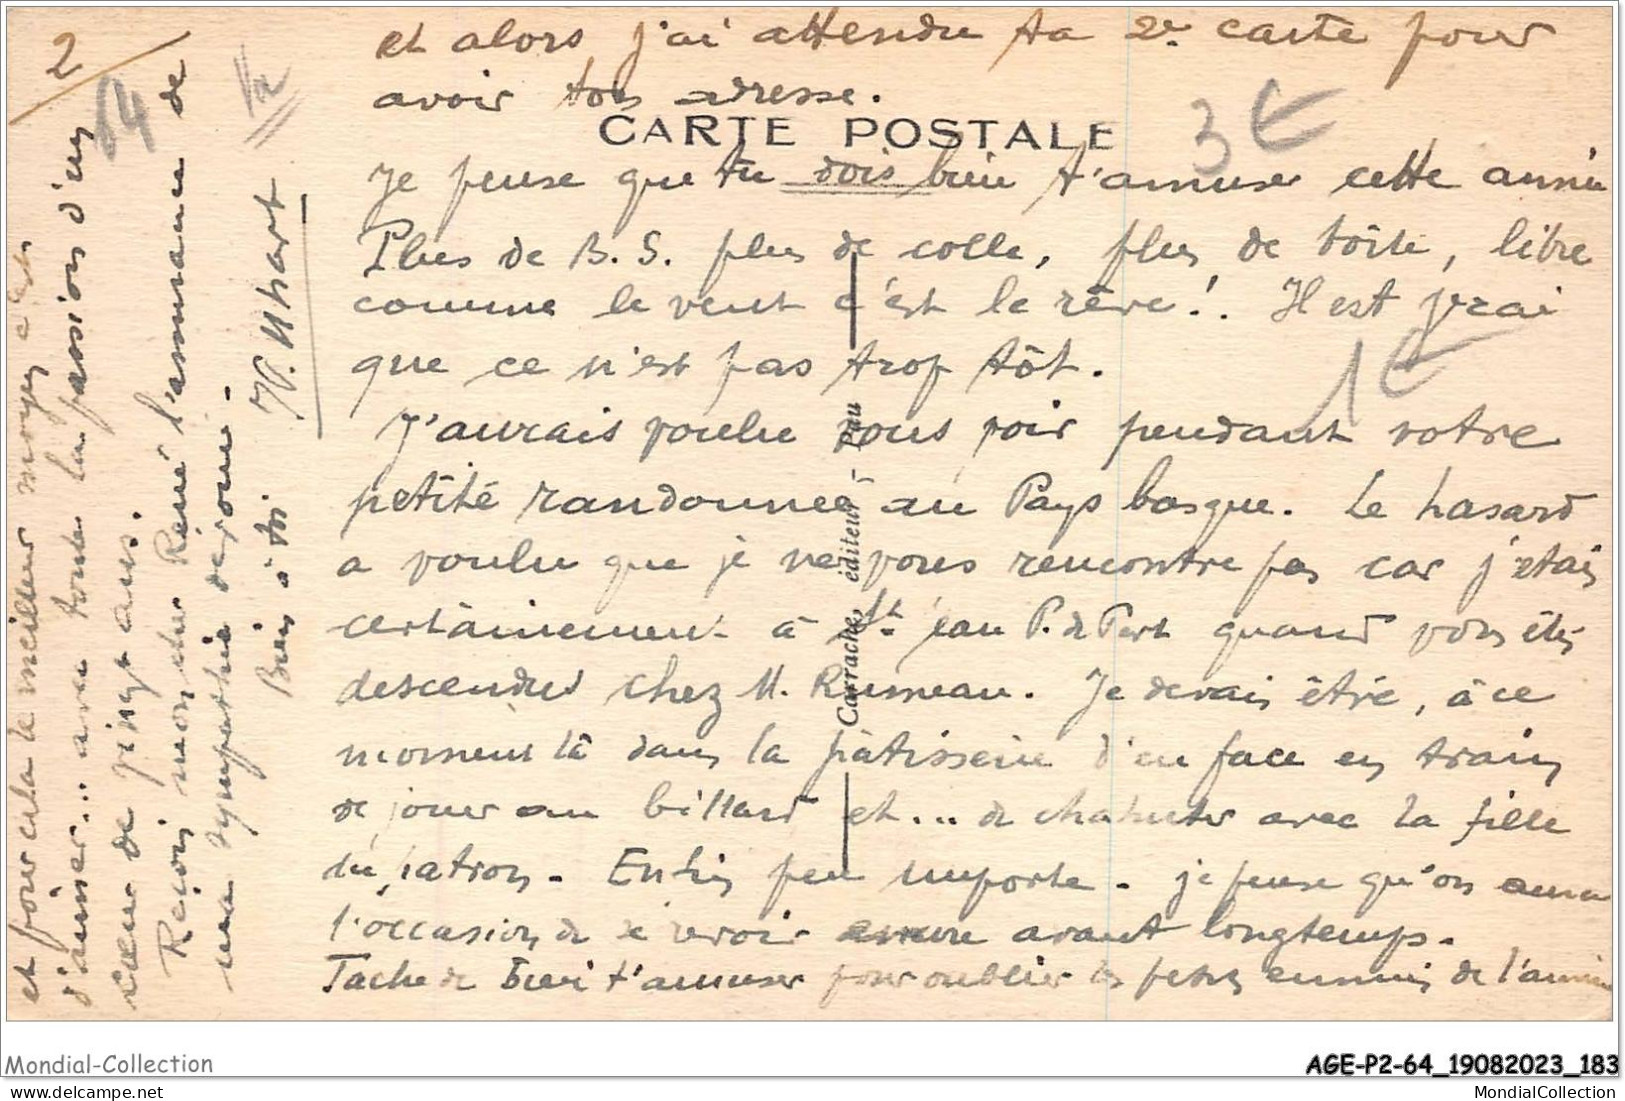 2
64
et alors j'ai attendu ta 2e carte pour
avoir ton adresse.
CARTE POSTALE
3 €
Je pense que tu dois bien t'amuser cette année
Plus de B.S. plus de colle, plus de boîte, libre
comme le vent c'est le rêve!. Il est vrai
que ce n'est pas trop tôt.
1 €
J'aurais voulu vous voir pendant votre
petite randonnée au Pays basque. Le hasard
a voulu que je ne vous rencontre pas car j'étais
certainement à St. Jean P. de Port quand vous êtes
descendus chez M. Rumeau. Je devais être, à ce
moment là dans la pâtisserie d'en face en train
de jouer au billard et... de chahuter avec la fille
du patron. Enfin peu importe. je pense qu'on aura
l'occasion de se revoir encore avant longtemps.
Tache de bien t'amuser pour oublier les petits ennuis de l'année
et pour cela le meilleur moyen c'est
d'aimer... avec toute la passion d'un
cœur de vingt ans.
Reçois mon cher René l'assurance de
ma sympathie
Bien à toi
Carrache, éditeur - Pau
Mondial-Collection
AGE-P2-64_19082023_183
MondialCollection.com
MondialCollection